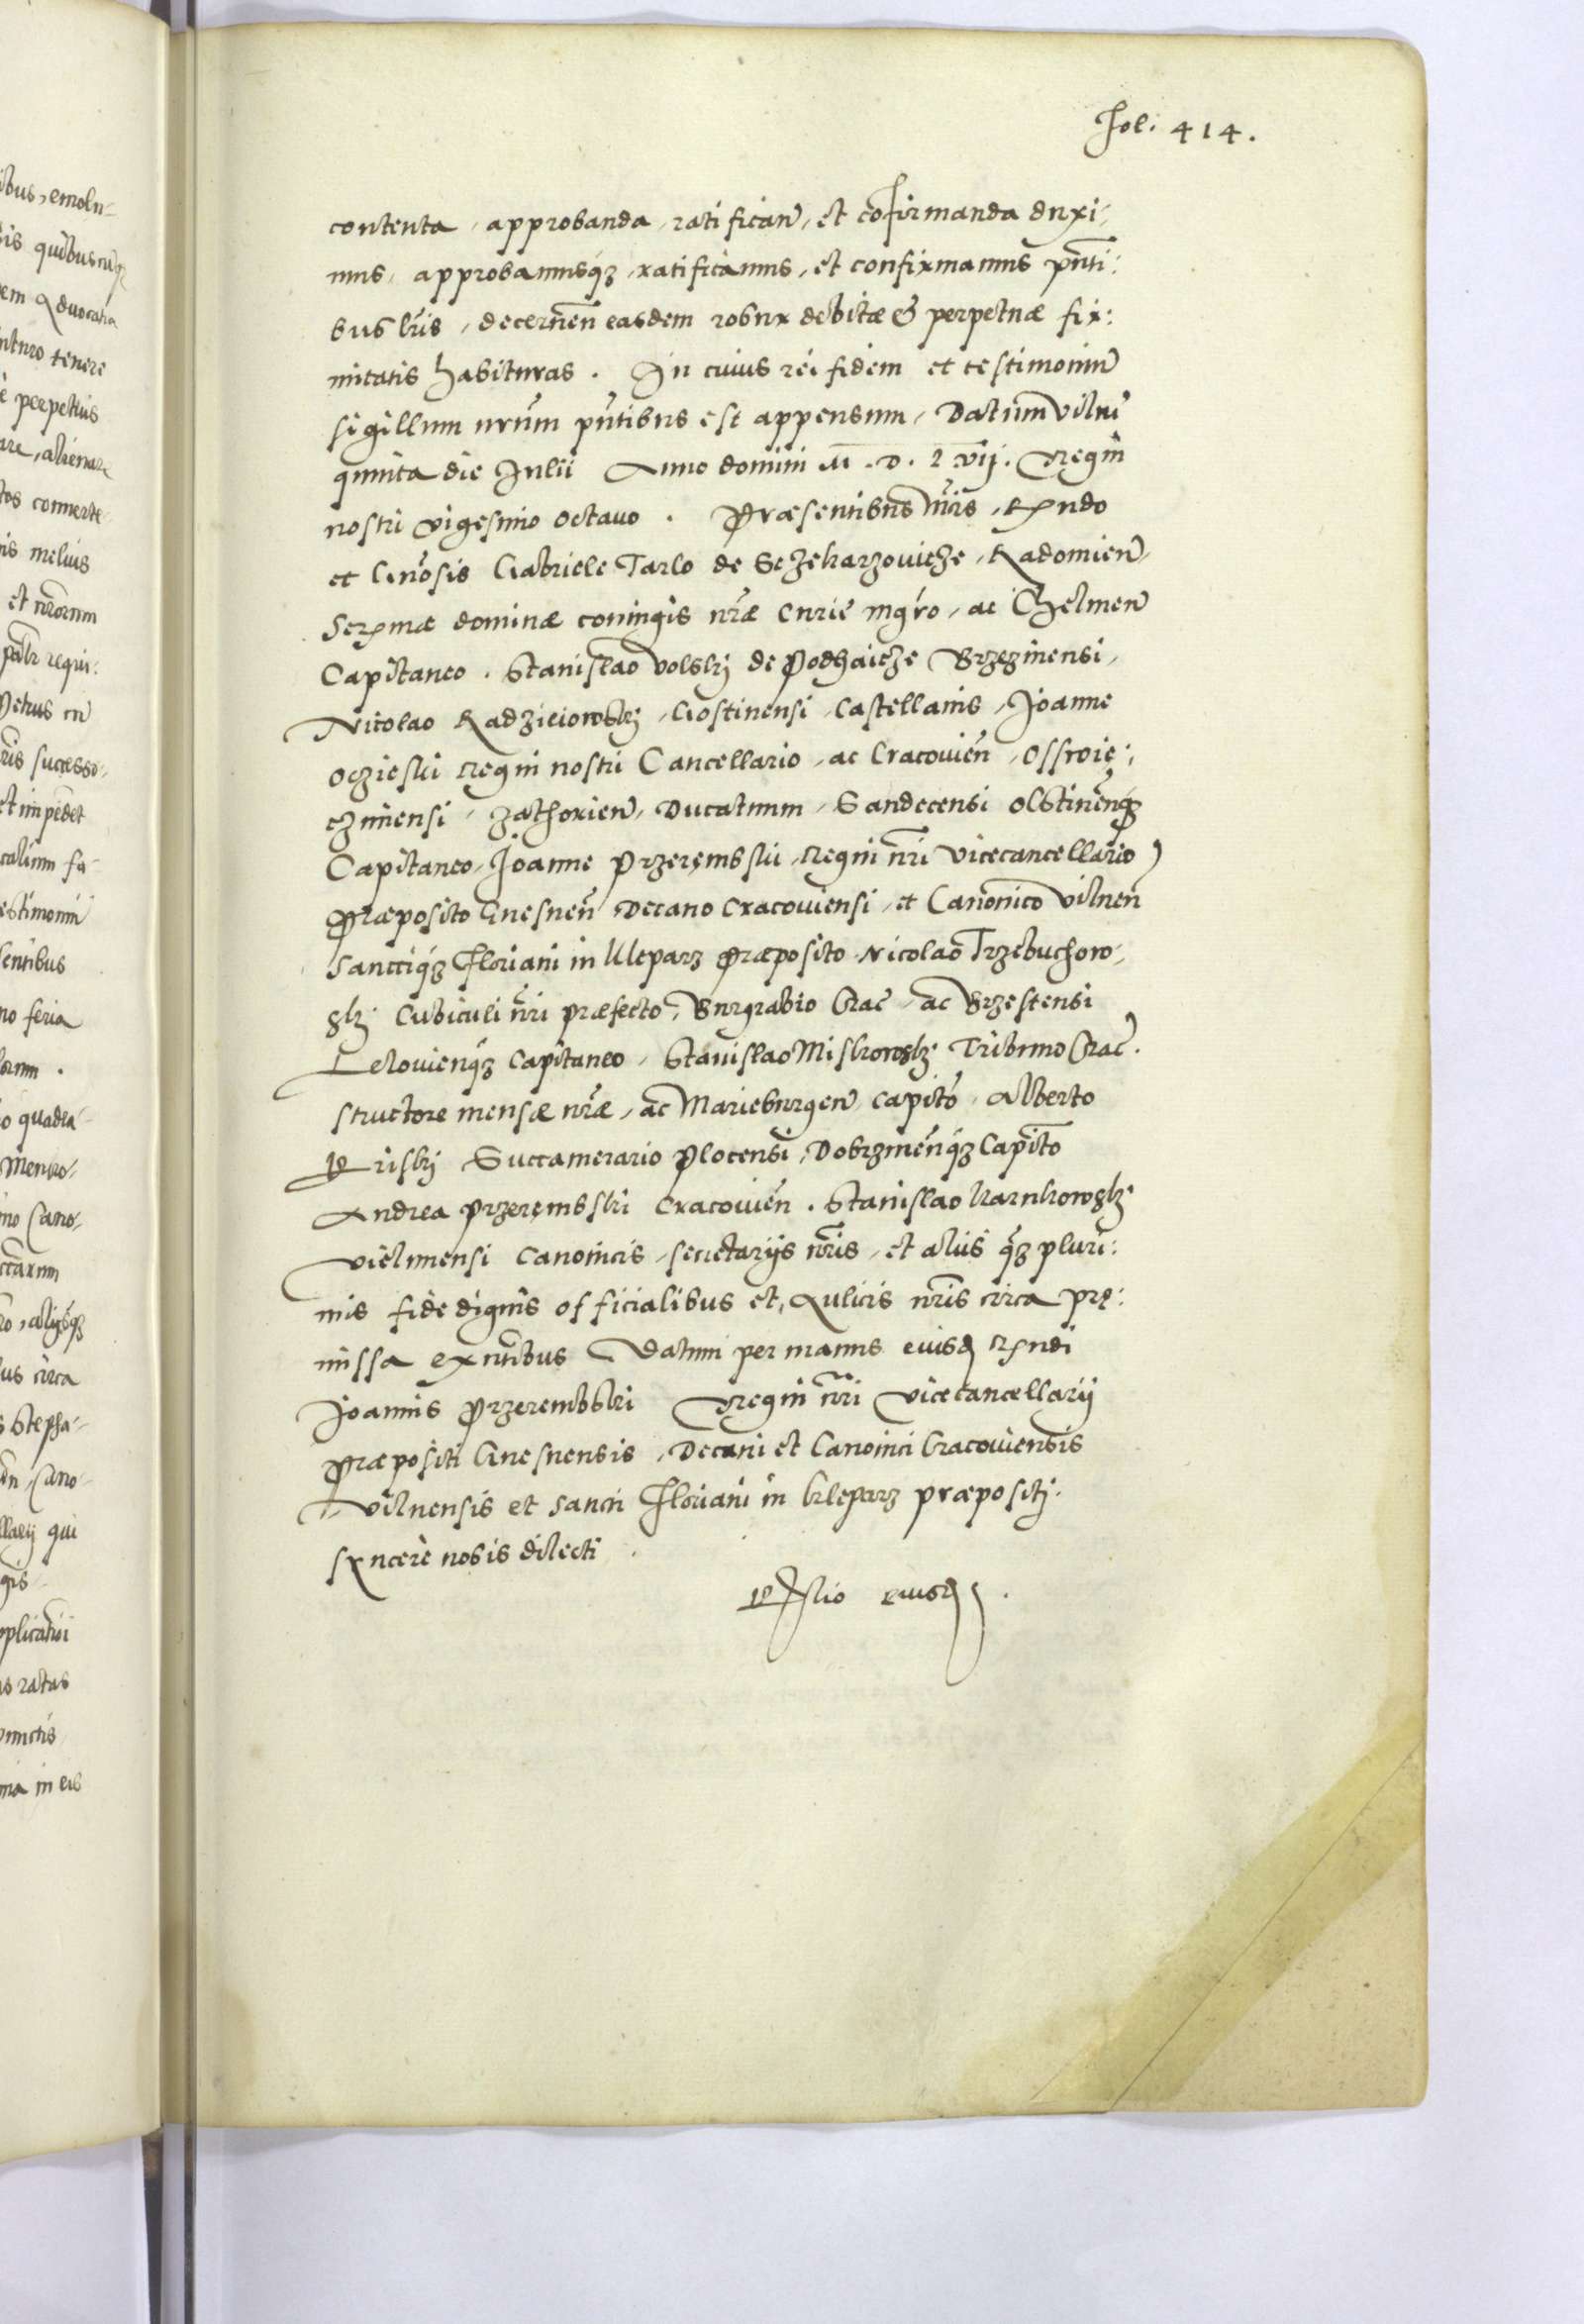 Fol. 414.
contenta, approbanda, ratifican̄, et cōfirmanda duxi-
mus, approbamusq́ʒ, ratificamus, et confirmamus pn̄ti:
bus lr̄is, decernen̄ easdem robur debitæ & perpetuæ fir:
mitatis habituras. In cuius rei fidem et testimoniū
sigillum nr̄um pn̄tibus est appensum, Datum Vilnȩ
quinta die Julii Anno domini M.D.Lvij. Regni
nostri vigesimo octavo. Præsentibus nr̄is, Rndo
et Gn̄osis Gabriele Tarlo de Sczekarzovicze, Radomien̄,
Sermæ dominæ coniugis nr̄æ curiȩ mgr̄o, ac Chelmen̄
Capitaneo. Stanislao Volskj de Podhaicze Brzezinensi,
Nicolao Radzieiowskj, Gostinensi, Castellanis, Joanne
Oczieski Regni nostri Cancellario, ac Cracovien̄, Osswie:
czimensi, Zathorien̄, Ducatuum, Sandecensi Olstinen̄q́ʒ
Capitaneo, Joanne Przerȩmbski, Regni nr̄i vicecancellario,
Præposito Gnesnen̄ Decano Cracoviensi, et Canonico Vilnen̄
Sanctiq́ʒ Floriani in Kleparz Præposito, Nicolao Trzebuchow-
skj Cubiculi nr̄i præfecto, Burgrabio Crac̄, ac Brzestensi
Lelovienq́ʒ Capitaneo, Stanislao Miskowskj Tribuno Crac̄.
structore mensæ nr̄æ, ac Marieburgen̄ capit̄o, Alberto
Kriskj Succamerario Plocensi, Dobrzinen̄q́ʒ Capit̄o
Andrea Przerȩmbski Cracovien̄. Stanislao Karnkowskj
Vielunensi Canonicis, secretarijs nr̄is, et aliis q́ʒ pluri:
mis fide dignis officialibus et, Aulicis nr̄is circa prȩ:
missa exn̄tibus Datum per manus eiusd Rndi
Joannis Przerembski Regni nr̄i vicecancellarij
Præpositi Gnesnensis, Decani et Canonici Cracoviensis
Vilnensis et Sancti Floriani in Kleparz præpositj.
syncere nobis dilecti.
Rlio eiusd.
ibus, emolu-
is quibuscu̅q̃
em Advocatia
turo tenere
perpetuis
are, alienare
tos converte
is melius
et
requi:
Petrus
ris successo-
et impedet
fa-
estimonii
sentibus
no feria
o quadra-
Cano-
us circa
Stepha-
Cano-
qui
s ratas
in eis